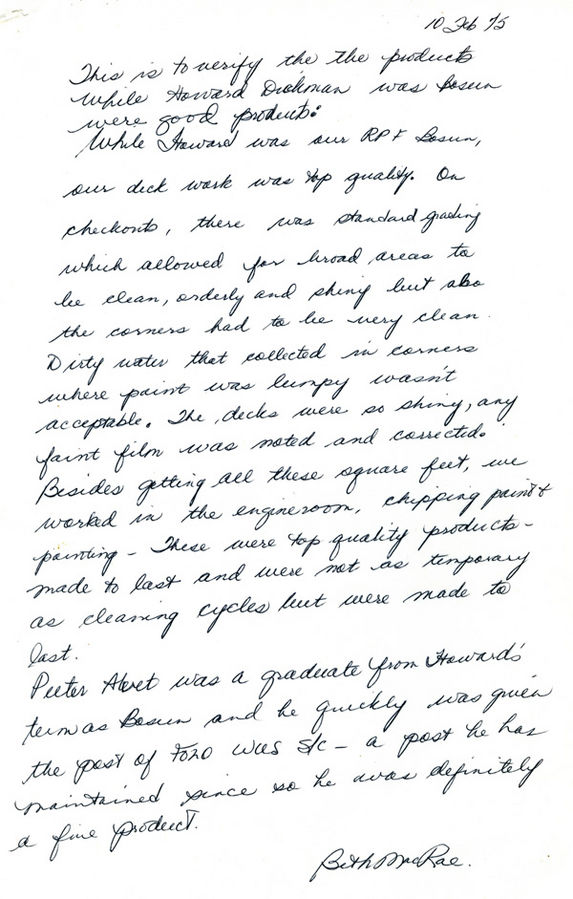 10 Feb 75
This is to verify the the products
while Howard Dickman was Bosun
were good products.
While Howard was our RPF Bosun,
our deck work was top quality. On
checkouts, there was standard grading
which allowed for broad areas to
be clean, orderly and shiny but also
the corners had to be very clean.
Dirty water that collected in corners
where paint was lumpy wasn't
acceptable. The decks were so shiny, any
faint film was noted and corrected.
Besides getting all these square feet, we
worked in the engineroom, chipping paint &
painting - These were top quality products -
made to last and were not as temporary
as cleaning cycles but were made to
last.
Peeter was a graduate from Howard's
term as Bosun and he quickly was given
the post of WUS S/C - a post he has
maintained since so he was definitely
a fine product.
Beth MacRae.